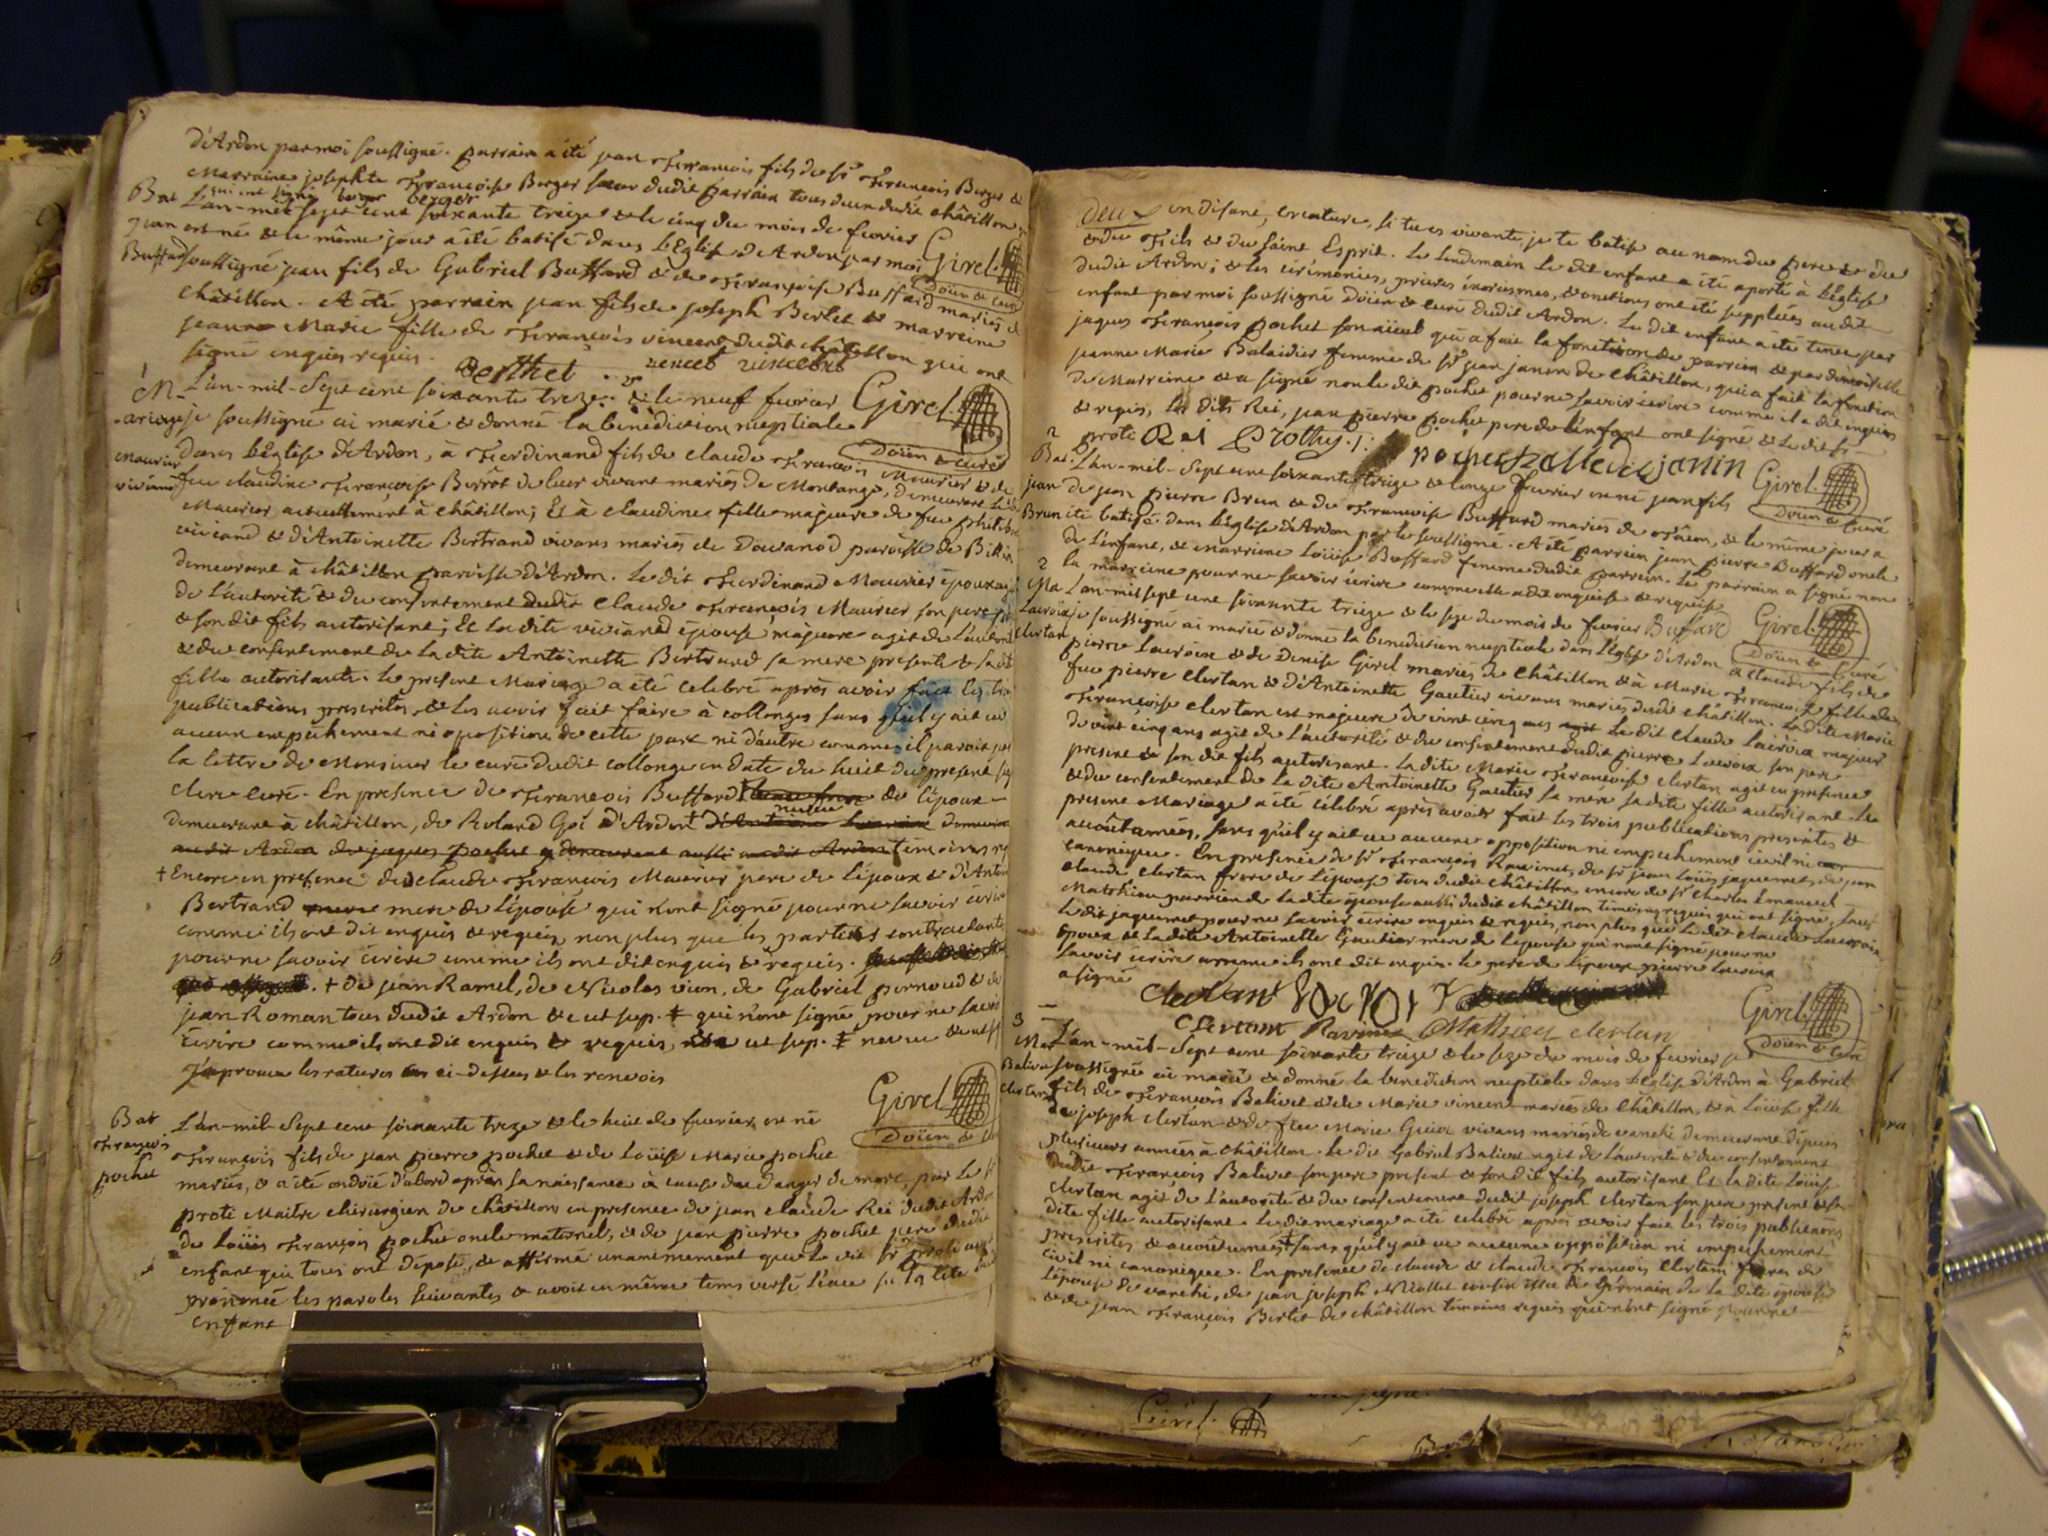 d'Ardon par moi soussigné. parrain a été jean François fils de sr François Berger &
Marraine josephte Françoise Berger sœur dudit parrain tous deux dudit châtillon
qui ont signé berger berger
Bat L'an-mil sept cent soixante treize & le cinq du mois de fevrier
jean est né & le même jour a été batisé dans l'Eglise d'Ardon par moi Girel.
Buffard soussigné jean fils de Gabriel Buffard & de Françoise Buffard mariés de
Doïen & curé
châtillon. A été parrain jean fils de joseph Bertet & marreine
jeanne Marie fille de François vincent dudit châtillon qui ont
signé enquis requis. Berthet vincent
M- L'an-mil-Sept cent soixante treze & le neuf fevrier Girel.
-ariage je soussigné ai marié & donné la benediction nuptiale
Doïen & curé
dans l'Eglise d'Ardon, à Ferdinand fils de claude François Maurier & de
Maurier viviand feu claudine Françoise Borrot de leur vivant mariés de Montange, demeurant
Maurier actuellement à châtillon; Et à claudine fille majeure de feu
viviand & d'Antoinette Bertrand vivans mariés de Douvanod paroisse de Billia
demeurant à châtillon paroisse d'Ardon. Le dit Ferdinand Maurier époux agit
de l'autorité & du consentement dudit claude François Maurier son pere
& son dit fils autorisant; Et la dite viviand épouse majeure agit de l'autorité
& du consentement de la dite Antoinette Bertrand sa mere presente & sa dite
fille autorisante. Le present Mariage a été celebré après avoir fait les trois
publications prescrites, & les avoir fait faire à collonges sans qu'il y ait eu
aucun empechement ni oposition de cette part ni d'autre comme il paroit par
la lettre de Monsieur le curé dudit collonge en date du huit du present
clerc curé. En presence de François Buffard de l'époux-
demeurant à châtillon, de Roland Goi d'Ardon
témoins
+ Encore en presence de claude François Maurier pere de l'époux & d'Antoi
Bertrand mere de l'épouse qui n'ont signé pour ne savoir écrire
comme ils ont dit enquis & requis, non plus que les parties contractantes
pour ne savoir écrire comme ils ont dit enquis & requis.
+ de jean Ramel, de Nicolas vion, de Gabriel pernoud & de
jean Roman tous dudit Ardon & c ut sup. qui n'ont signé pour ne savoir
écrire comme ils ont dit enquis & requis, ut sup. neveu
j'aprouve les ratures ci-dessus & les renvois
Girel.
Doïen & curé
Bat L'an-mil-Sept cent soixante treze & le huit de fevrier, est né
François François fils de jean pierre pochet & de Loüise Marie pochet
pochet mariés, & a été ondoïé d'abord après sa naissance à cause du danger de mort, par le sr
proti Maitre chirurgien de châtillon en presence de jean claude Rei dudit Ardon
de Loüis François pochet oncle maternel, & de jean pierre pochet pere dudit
enfant qui tous ont déposé, & affirmé unanimement que le dit sr proti avoit
prononcé les paroles suivantes & avoit en même tems versé l'eau sur la tête du
enfant
deux en disant, creature, si tu es vivante, je te batise au nom du pere & du
& du Fils & du Saint Esprit. Le lendemain le dit enfant a été aporté à l'Eglise
dudit Ardon; & les cérémonies, prieres exorcismes, & onctions ont été supplées audit
enfant par moi soussigné Doïen & curé dudit Ardon. Le dit enfant a été tenu par
jaques François pochet son aïeul qui a fait la fonction de parrain & par demoiselle
jeanne Marie Balaidier femme de sr jean janin de châtillon, qui a fait la fonction
de Marreine & a signé non le dit pochet pour ne savoir écrire comme il a dit enquis
& requis, les dits Rei, jean pierre pochet pere de l'enfant ont signé & le dit sr
proti Rei Prothy. pochet Balleidy janin Girel.
Doïen & curé
2 Bat. L'an-mil-Sept cent soixante treize & l'onze fevrier est né jean fils
jean de jean pierre Brun & de Françoise Buffard mariés de Tacon, & le même jour a
Brun été batisé dans l'Eglise d'Ardon par le soussigné. A été parrein jean pierre Buffard oncle
de l'enfant, & marreine Loüise Buffard femme dudit parrein. Le parrain a signé non
la marreine pour ne savoir écrire comme elle a dit enquise & requise
2 Ma L'an-mil sept cent soixante treize & le seze du mois de fevrier Buffard Girel.
Lacroix je soussigné ai marié & donné la benediction nuptiale dans l'Eglise d'Ardon à claude fils de
Doïen & curé
Clertan pierre Lacroix & de Denise Girel mariés de châtillon & à Marie Françoise fille de
feu pierre Clertan & d'Antoinette Gautier vivans mariés dudit châtillon. La dite Marie
Françoise clertan est majeure de vint cinq ans Le dit claude Lacroix majeur
de vint cinq ans agit de l'autorité & du consentement dudit pierre Lacroix son pere
present & son dit fils autorisant. La dite Marie Françoise Clertan agit en presence
& du consentement de la dite Antoinette Gautier sa mere sa dite fille autorisant. Le
present Mariage a été célebré après avoir fait les trois publications prescrites &
acoutumées, sans qu'il y ait eu aucune opposition ni empechement civil ni
canonique. En presence de sr François Ravinet, de sr jean Loüis jaquemet, de jean
claude clertan frere de l'épouse tous dudit châtillon, encore de sr Charles Emanuel
Mathieu parrein de la dite épouse aussi dudit châtillon témoins requis qui ont signé, sauf
le dit jaquemet pour ne savoir écrire enquis & requis, non plus que le dit claude Lacroix
époux & la dite Antoinette Gautier mere de l'épouse qui n'ont signé pour ne
savoir écrire comme ils ont dit enquis. le pere de l'époux pierre Lacroix
a signé
Clertant
Clertan Ravinet Mathieu clertan Girel.
Doïen & curé
3 Mar L'an-mil-Sept cent soixante treize & le seze du mois de fevrier je
Balivet soussigné ai marié & donné la benediction nuptiale dans l'Eglise d'Ardon à Gabriel
Clertan fils de François Balivet & de Marie vincent mariés de châtillon, & à Loüise fille
de joseph Clertan & de feu Marie Guia vivans mariés de vanchi demeurant dépuis
plusieurs années à châtillon. le dit Gabriel Balivet agit de l'autorité & du consentement
dudit François Balivet son pere present & son dit fils autorisant Et la dite Loüise
clertan agit de l'autorité & du consentement dudit joseph clertan son pere present & sa
dite fille autorisant. Le dit mariage a été celebré après avoir fait les trois publications
prescrites & acoutumées sans qu'il y ait eu aucune opposition ni empechement
civil ni canonique. En presence de claude & claude François Clertan freres de
l'épouse de vanchi, de jean joseph Niollet cousin issu de Germain de la dite épouse
& de jean François Bertet de châtillon témoins requis qui n'ont signé pour ne
Girel.